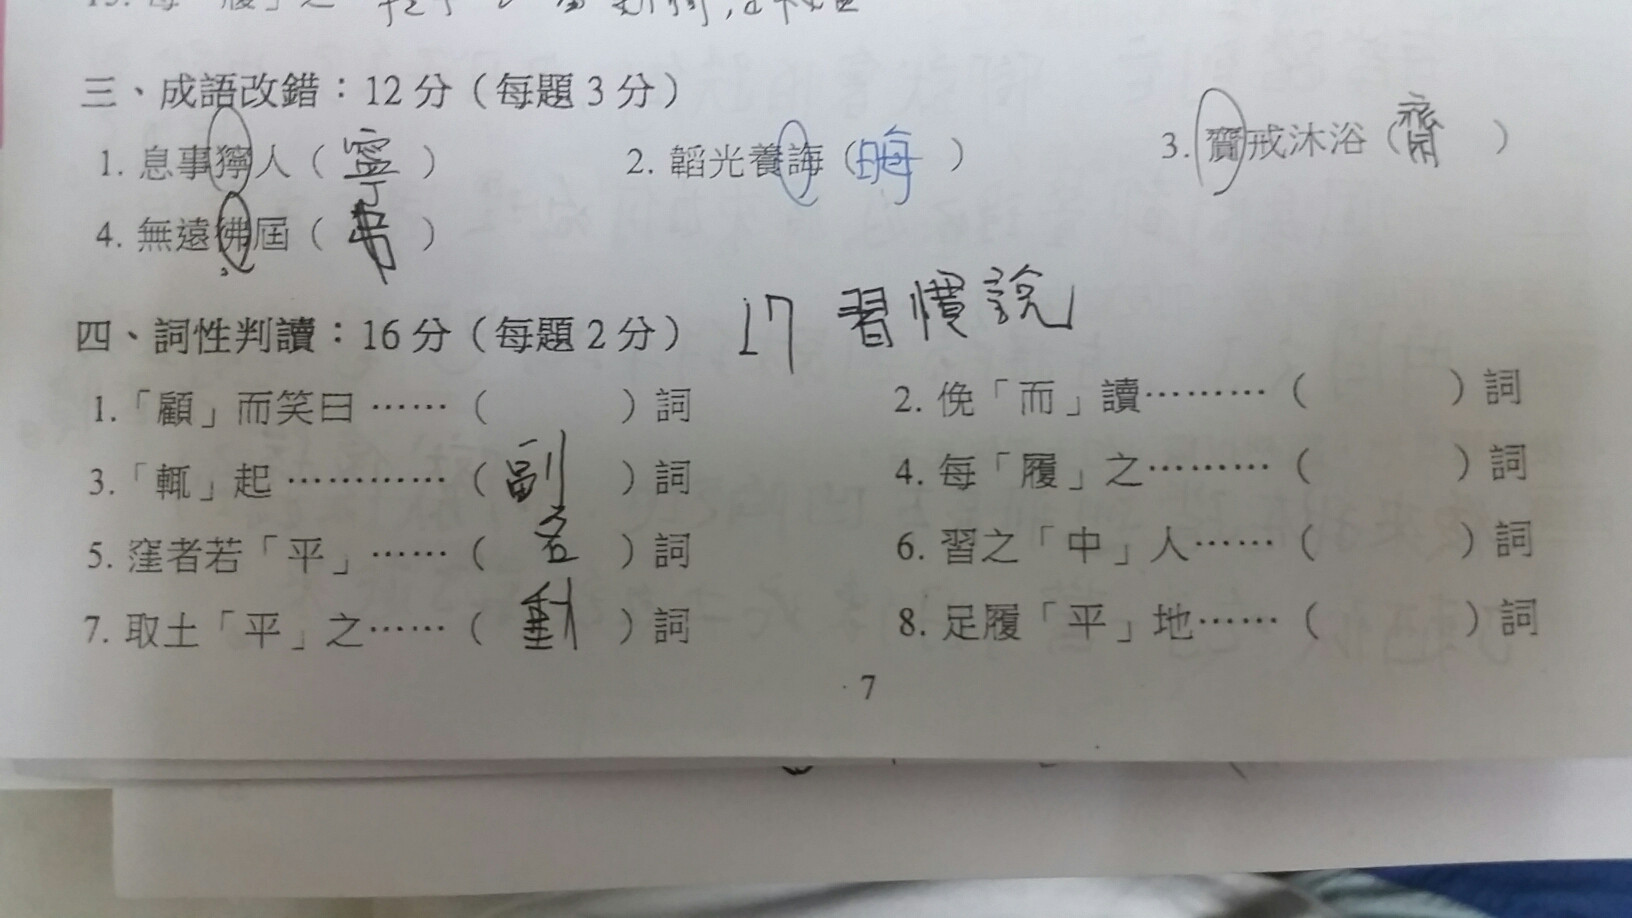 三、成語改錯：12分（每題3分）
1. 息事獰人（寧）　2. 韜光養誨（晦）　3. 齎戒沐浴（齋）
4. 無遠彿屆（弗）
四、詞性判讀：16分（每題2分）　17 習慣說
1.「顧」而笑曰……（　）詞　2. 俛「而」讀………（　）詞
3.「輒」起…………（副）詞　4. 每「履」之………（　）詞
5. 窪者若「平」……（名）詞　6. 習之「中」人……（　）詞
7. 取土「平」之……（動）詞　8. 足履「平」地……（　）詞
7